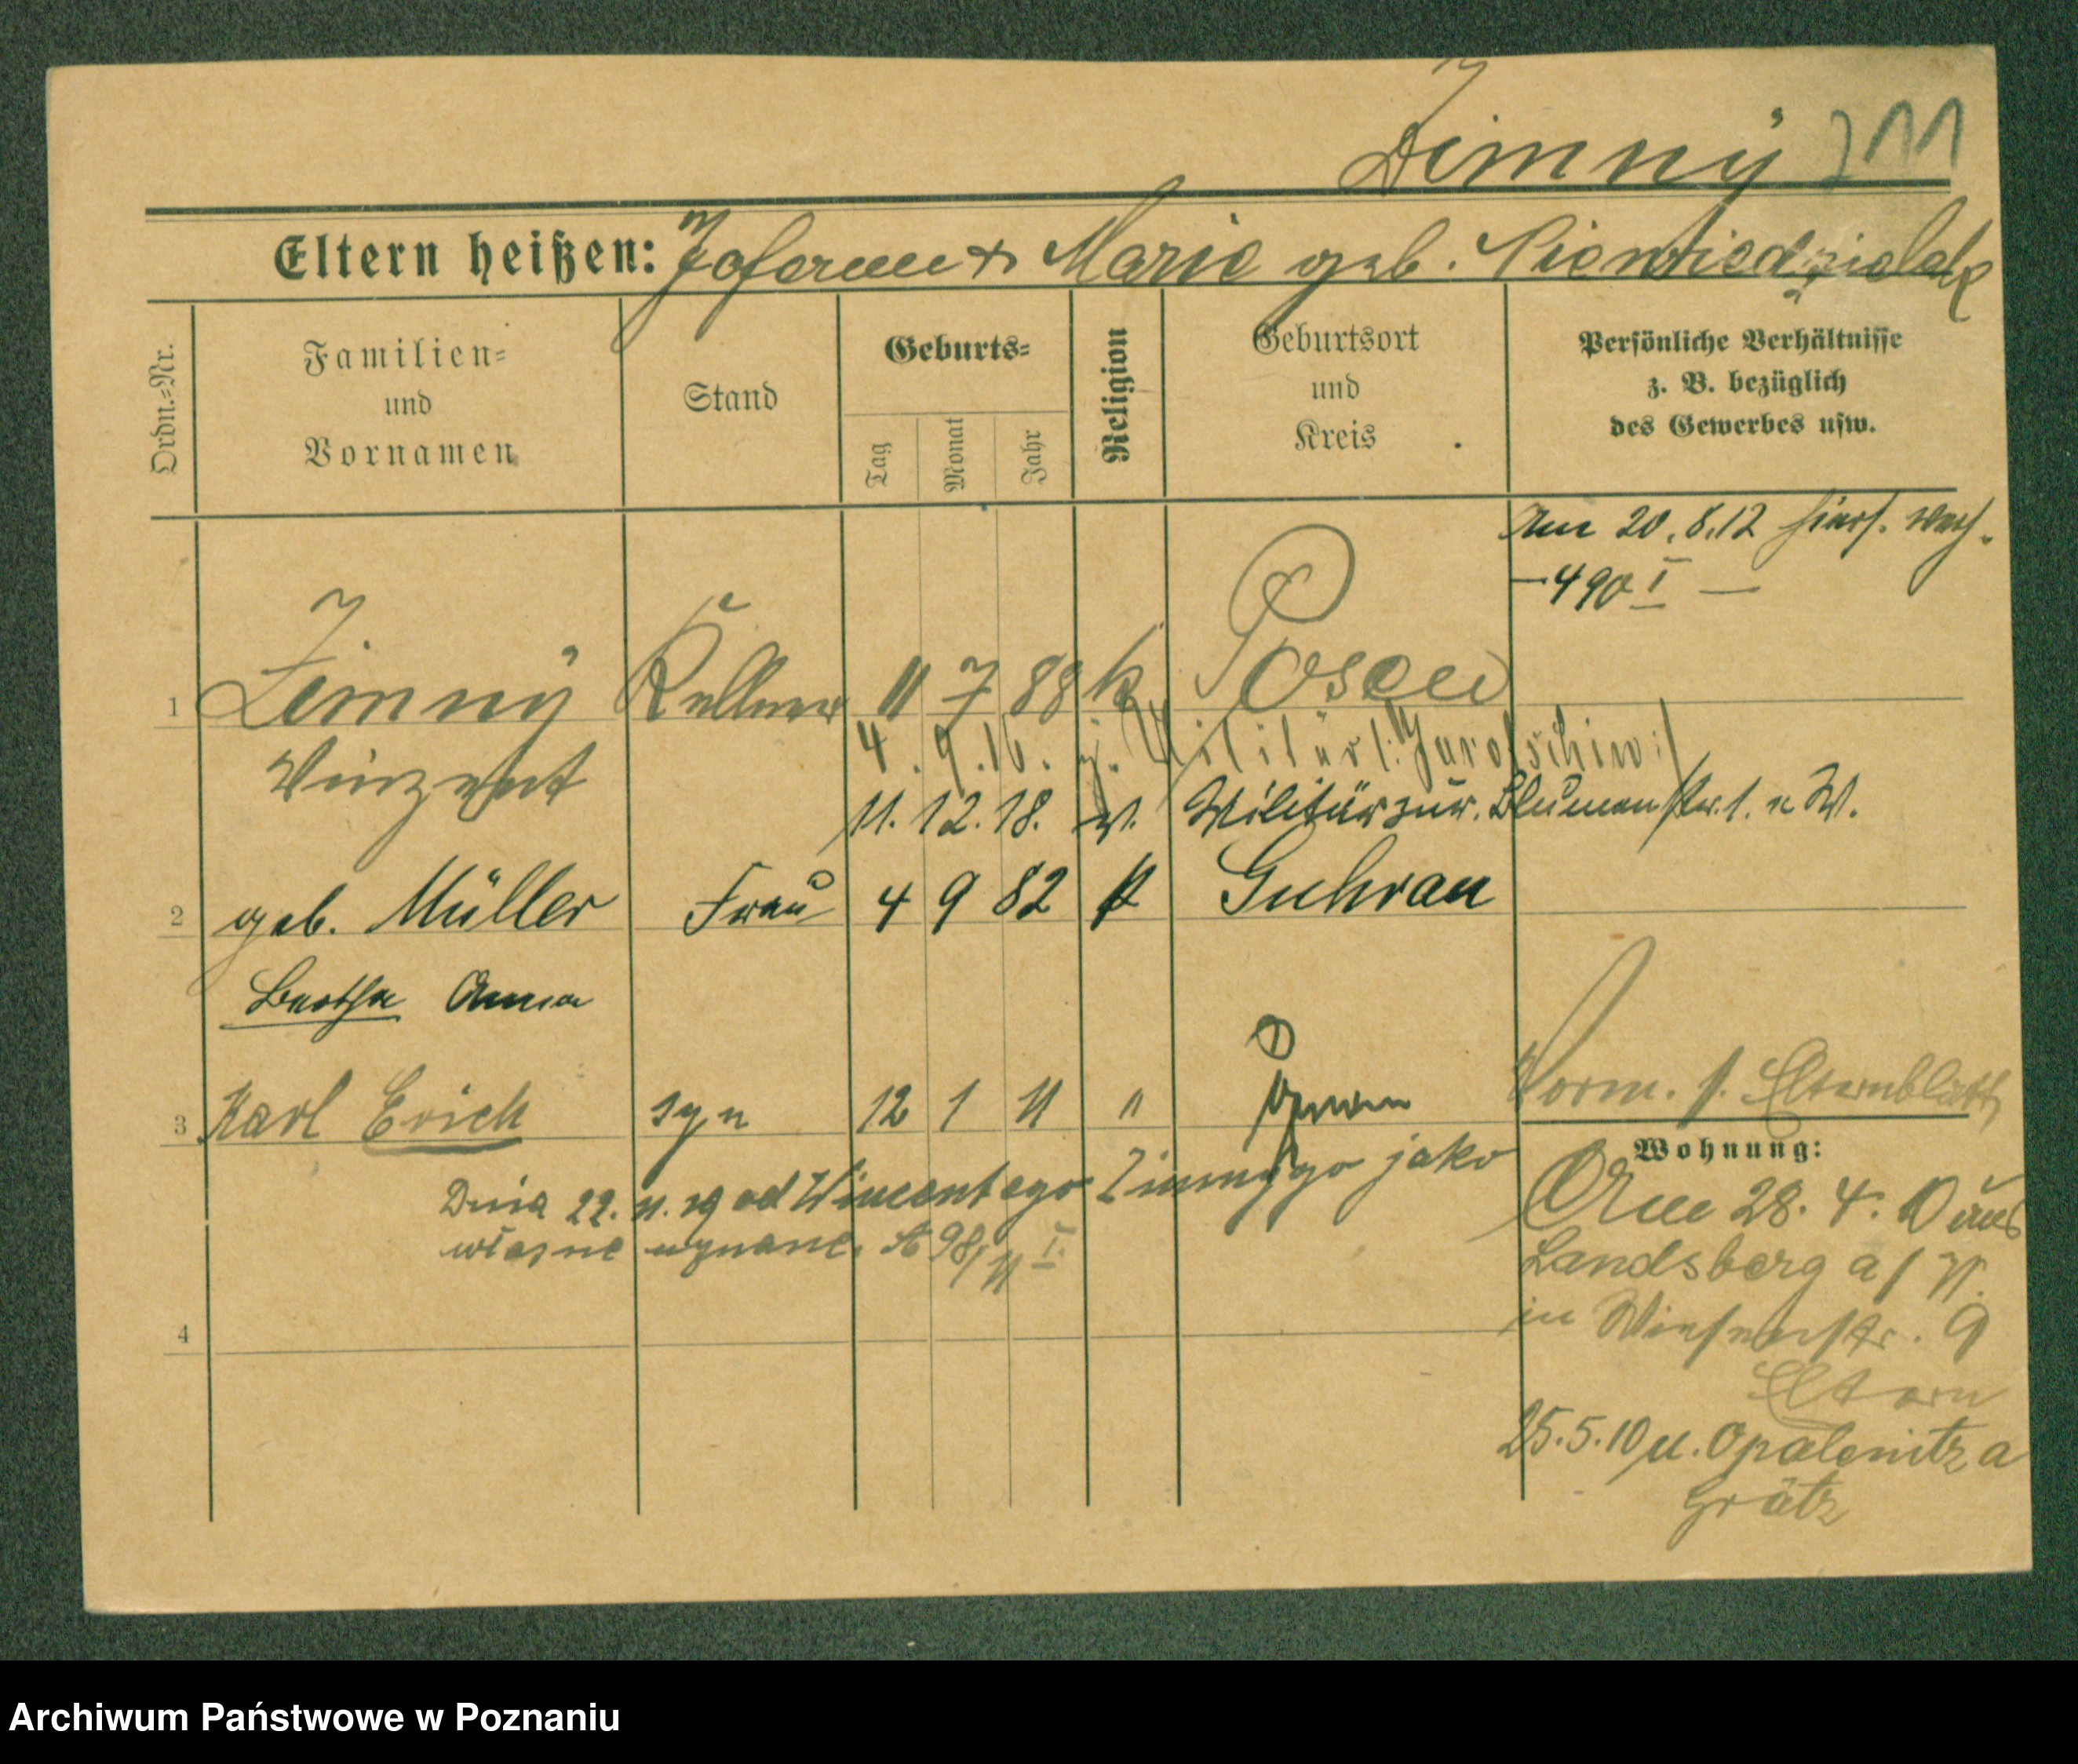 Zimny 211
Eltern heißen: Johann & Marie geb. Niewiedzialek
Ordn.=Nr.
Familien=
und
Vornamen
Stand
Geburts=
Tag
Monat
Jahr
Religion
Geburtsort
und
Kreis
Persönliche Verhältnisse
z. B. bezüglich
des Gewerbes usw.
Am 20.8.12
— 490 I —
1 Zimny Kellner 11 7 88 k Posen
Vinzent
4. 9. 16. z. Militär /: Jarotschin :/
11. 12. 18. v. Militär zur. Blumenstr. 1. n W.
2 geb. Müller Frau 4 9 82 k Guhrau
Bertha Anna
3 Karl Erich syn 12 1 11 "
Dnia 22. 11. 19 od Wincentego Zimnego jako
własne uznane. A 98/11 I.
Vorm. s. Elternblatt
Wohnung:
Am 28. 4. 10 aus
Landsberg a/W.
in Wiesenstr. 9
Eltern
25.5.10 u. Opalenitza
Grätz
4
Archiwum Państwowe w Poznaniu